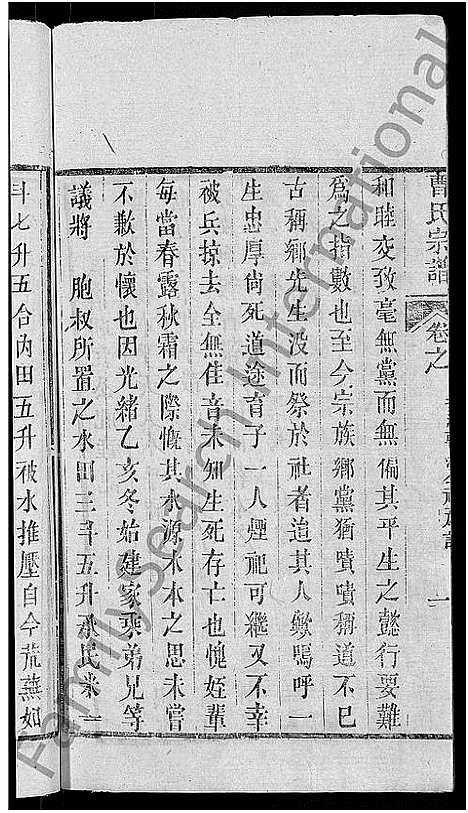 曹氏宗譜
卷之
一
和睦交孜毫無黨而無偏其平生之懿行要難
為之指數也至今宗族鄉黨猶嘖嘖稱道不已
古稱鄉先生沒而祭於社者這其人歟嗚呼一
生忠厚尚死道途育子一人煙祀可繼又不幸
被兵掠去全無佳音未知生死存亡也愧姪輩
每當春露秋霜之際慨其水源木本之思未嘗
不歉於懷也因光緒乙亥冬始建家乘弟兄等
議將 胞叔所置之水田三斗五升承民米一
斗七升五合內田五升被水推壓自今荒蕪如
FamilySearch International